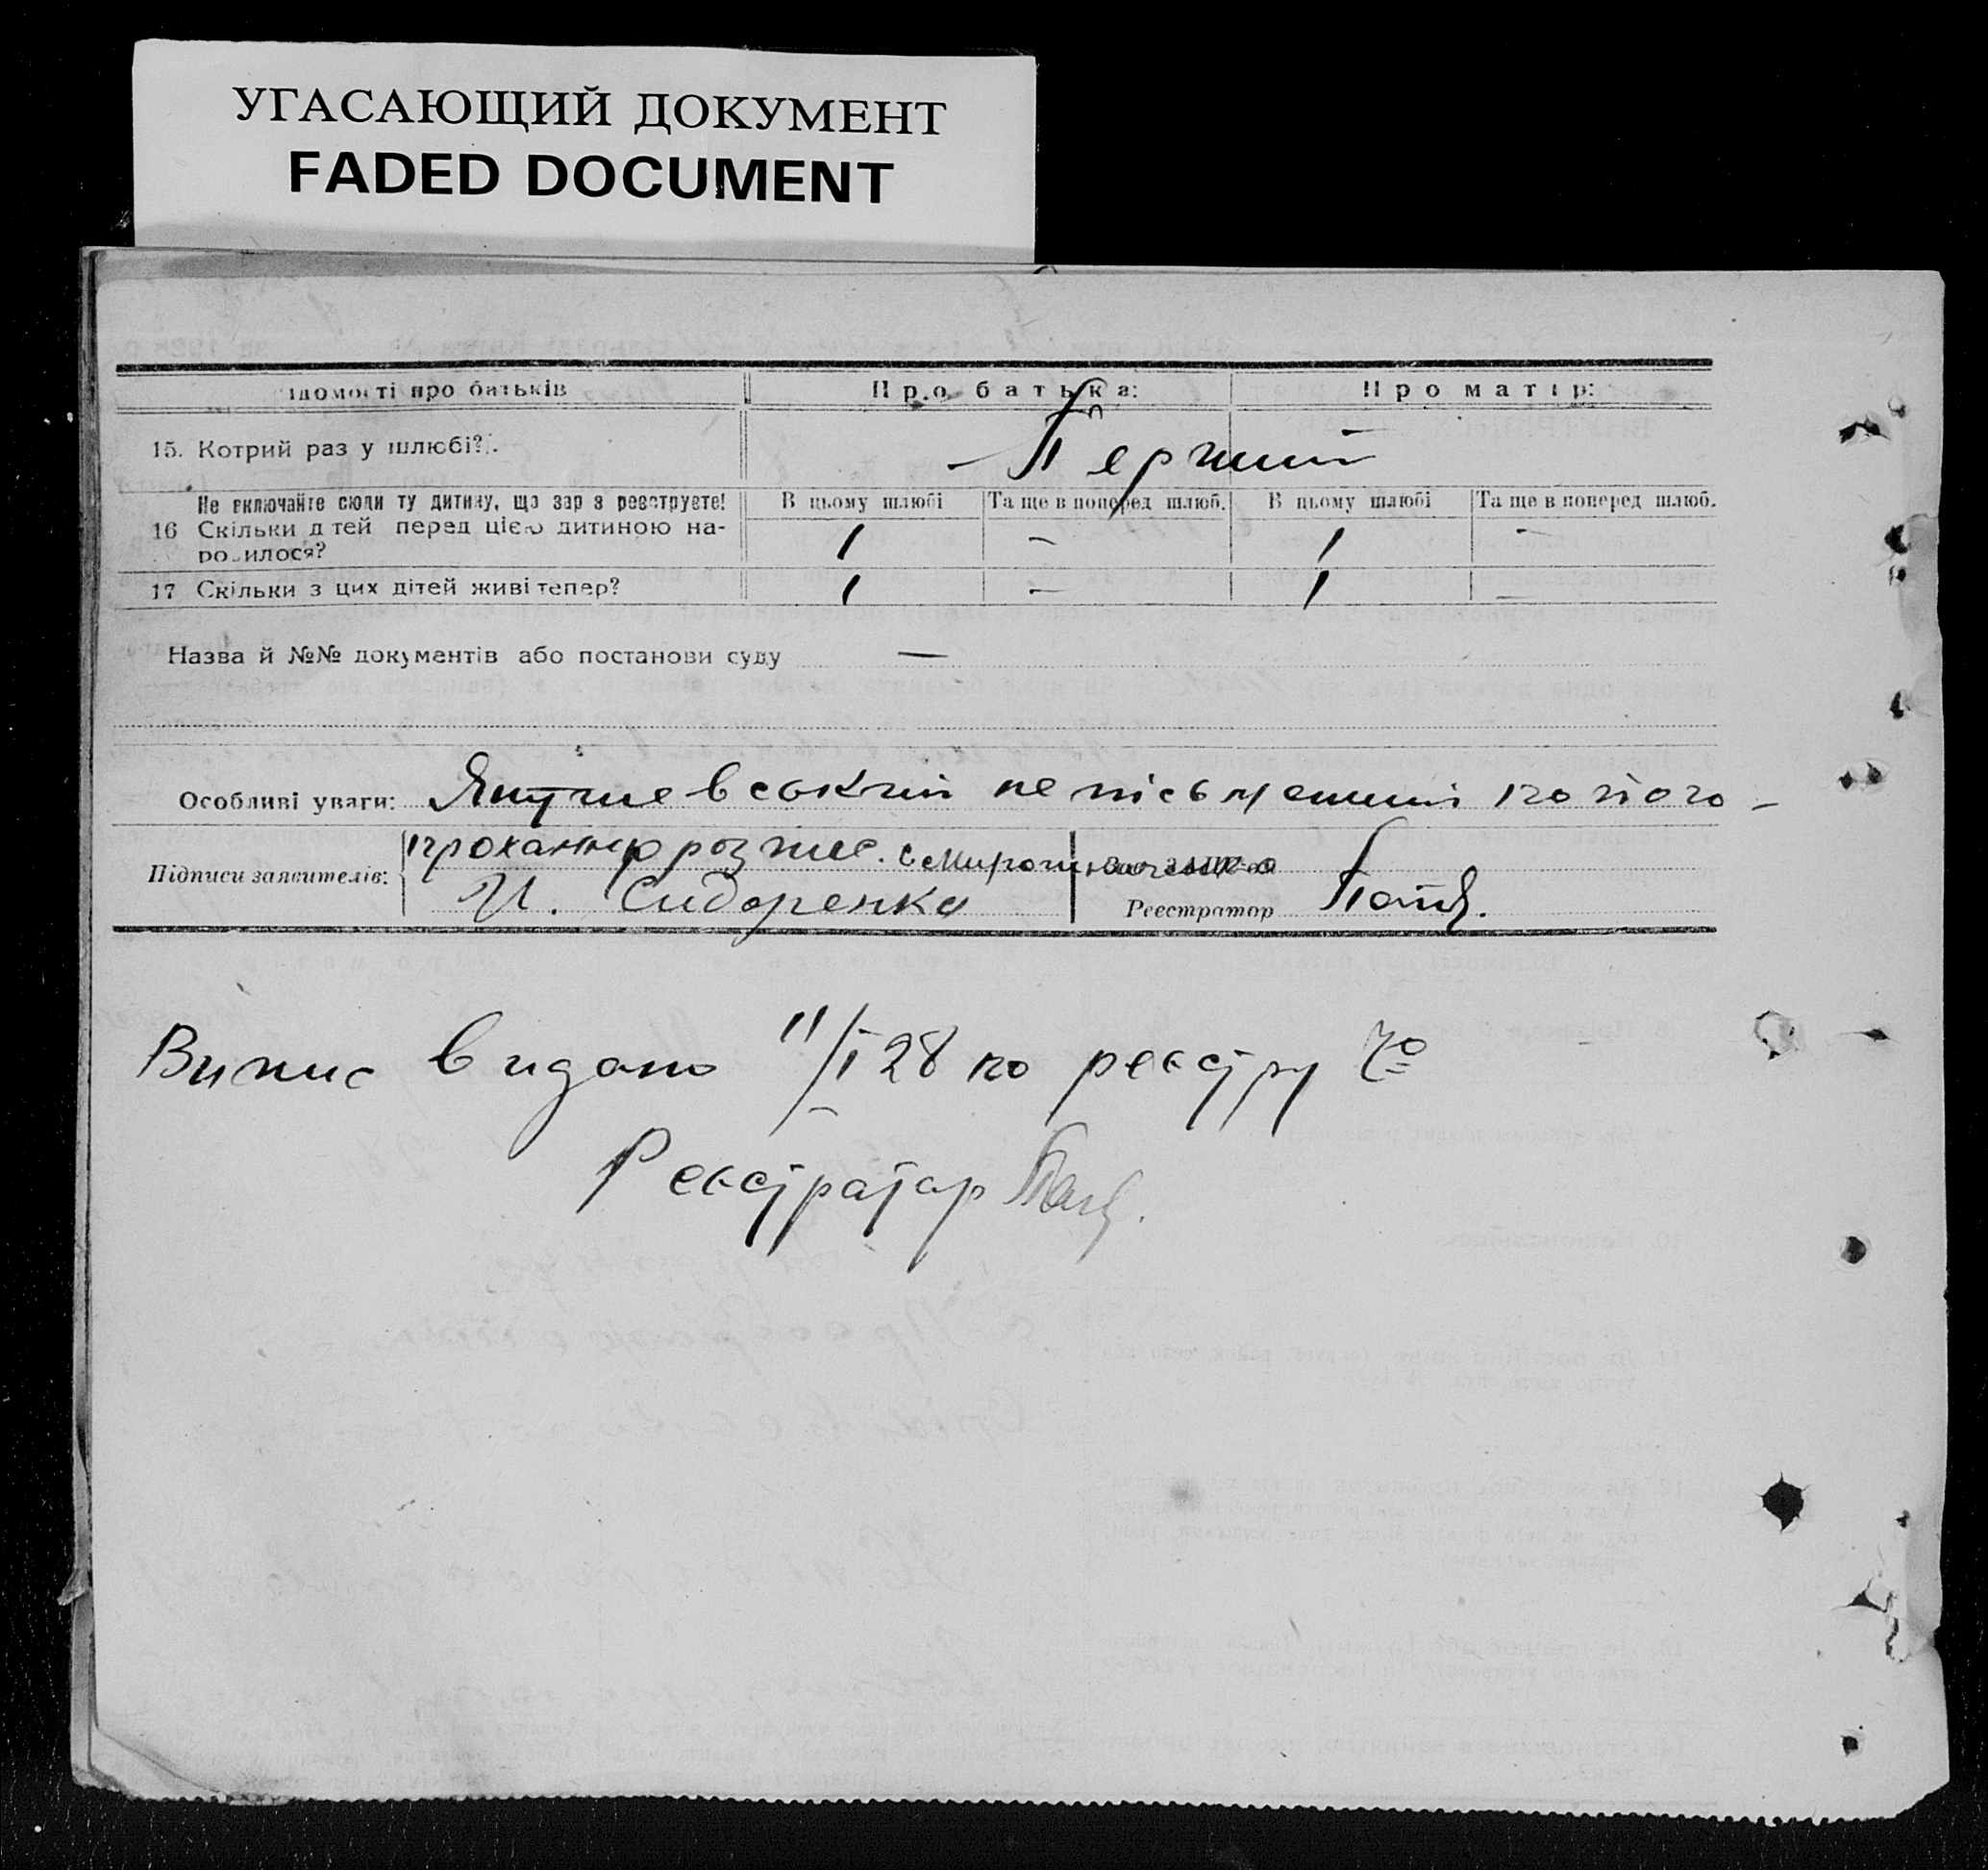 УГАСАЮЩИЙ ДОКУМЕНТ
FADED DOCUMENT
ідомості про батьків Про батька: Про матір:
15. Котрий раз у шлюбі? Перший
Не включайте сюди ту дитину, що зараз реєструєте! В цьому шлюбі Та ще в поперед шлюб. В цьому шлюбі Та ще в поперед шлюб.
16 Скільки дітей перед цією дитиною на- 1 — 1 —
родилося?
17 Скільки з цих дітей живі тепер? 1 — 1 —
Назва й №№ документів або постанови суду —
Особливі уваги: не письменний по його
проханню розпис.
Підписи заявителів:
И. Сидоренко Реєстратор
Випис видано 11/I 28 по реєстру
Реєстратор